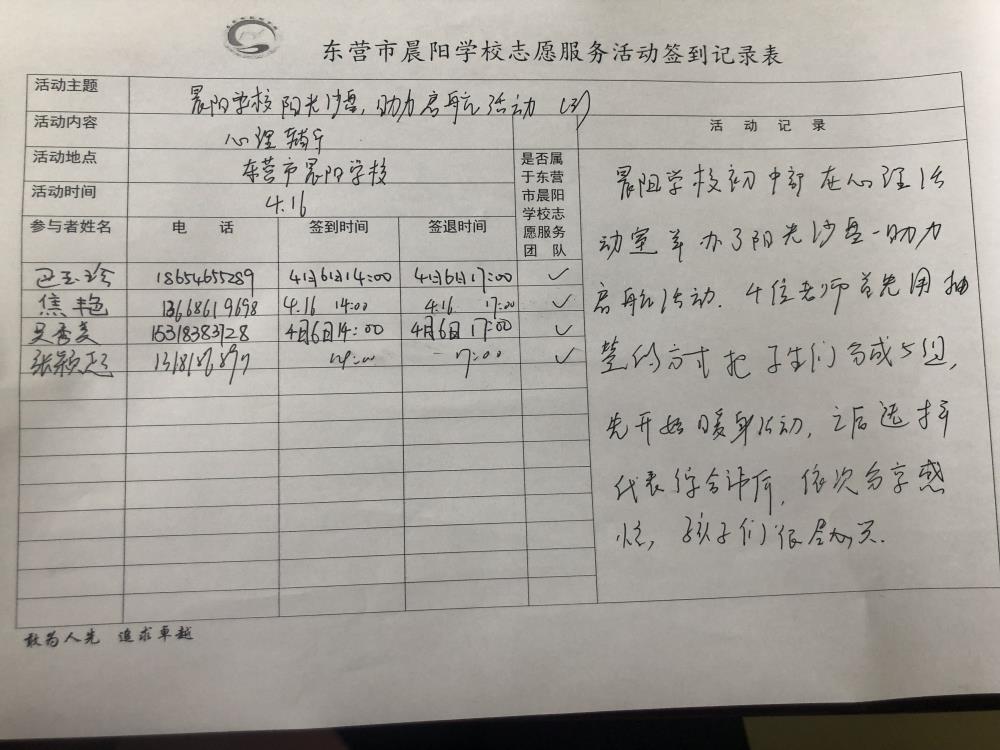 东营市晨阳学校志愿服务活动签到记录表
活动主题 晨阳学校阳光沙盘,助力启航活动 (3)
活动内容 心理辅导
活动地点 东营市晨阳学校
活动时间 4.16
是否属于东营市晨阳学校志愿服务团队
活动记录
参与者姓名 电话 签到时间 签退时间
18654655289 4月16日14:00 4月16日17:00 ✓
焦艳 13668619698 4.16 14:00 4.16 17:00 ✓
吴秀美 15318383728 4月6日14:00 4月6日17:00 ✓
张颖 14:00 17:00 ✓
晨阳学校初中部在心理活
动室举办了阳光沙盘-助力
启航活动.4位老师首先用抽
签的方式把学生们分成5组,
先开始暖身活动,之后选择
代表综合评价,依次分享感
悟,孩子们很尽兴.
敢为人先 追求卓越